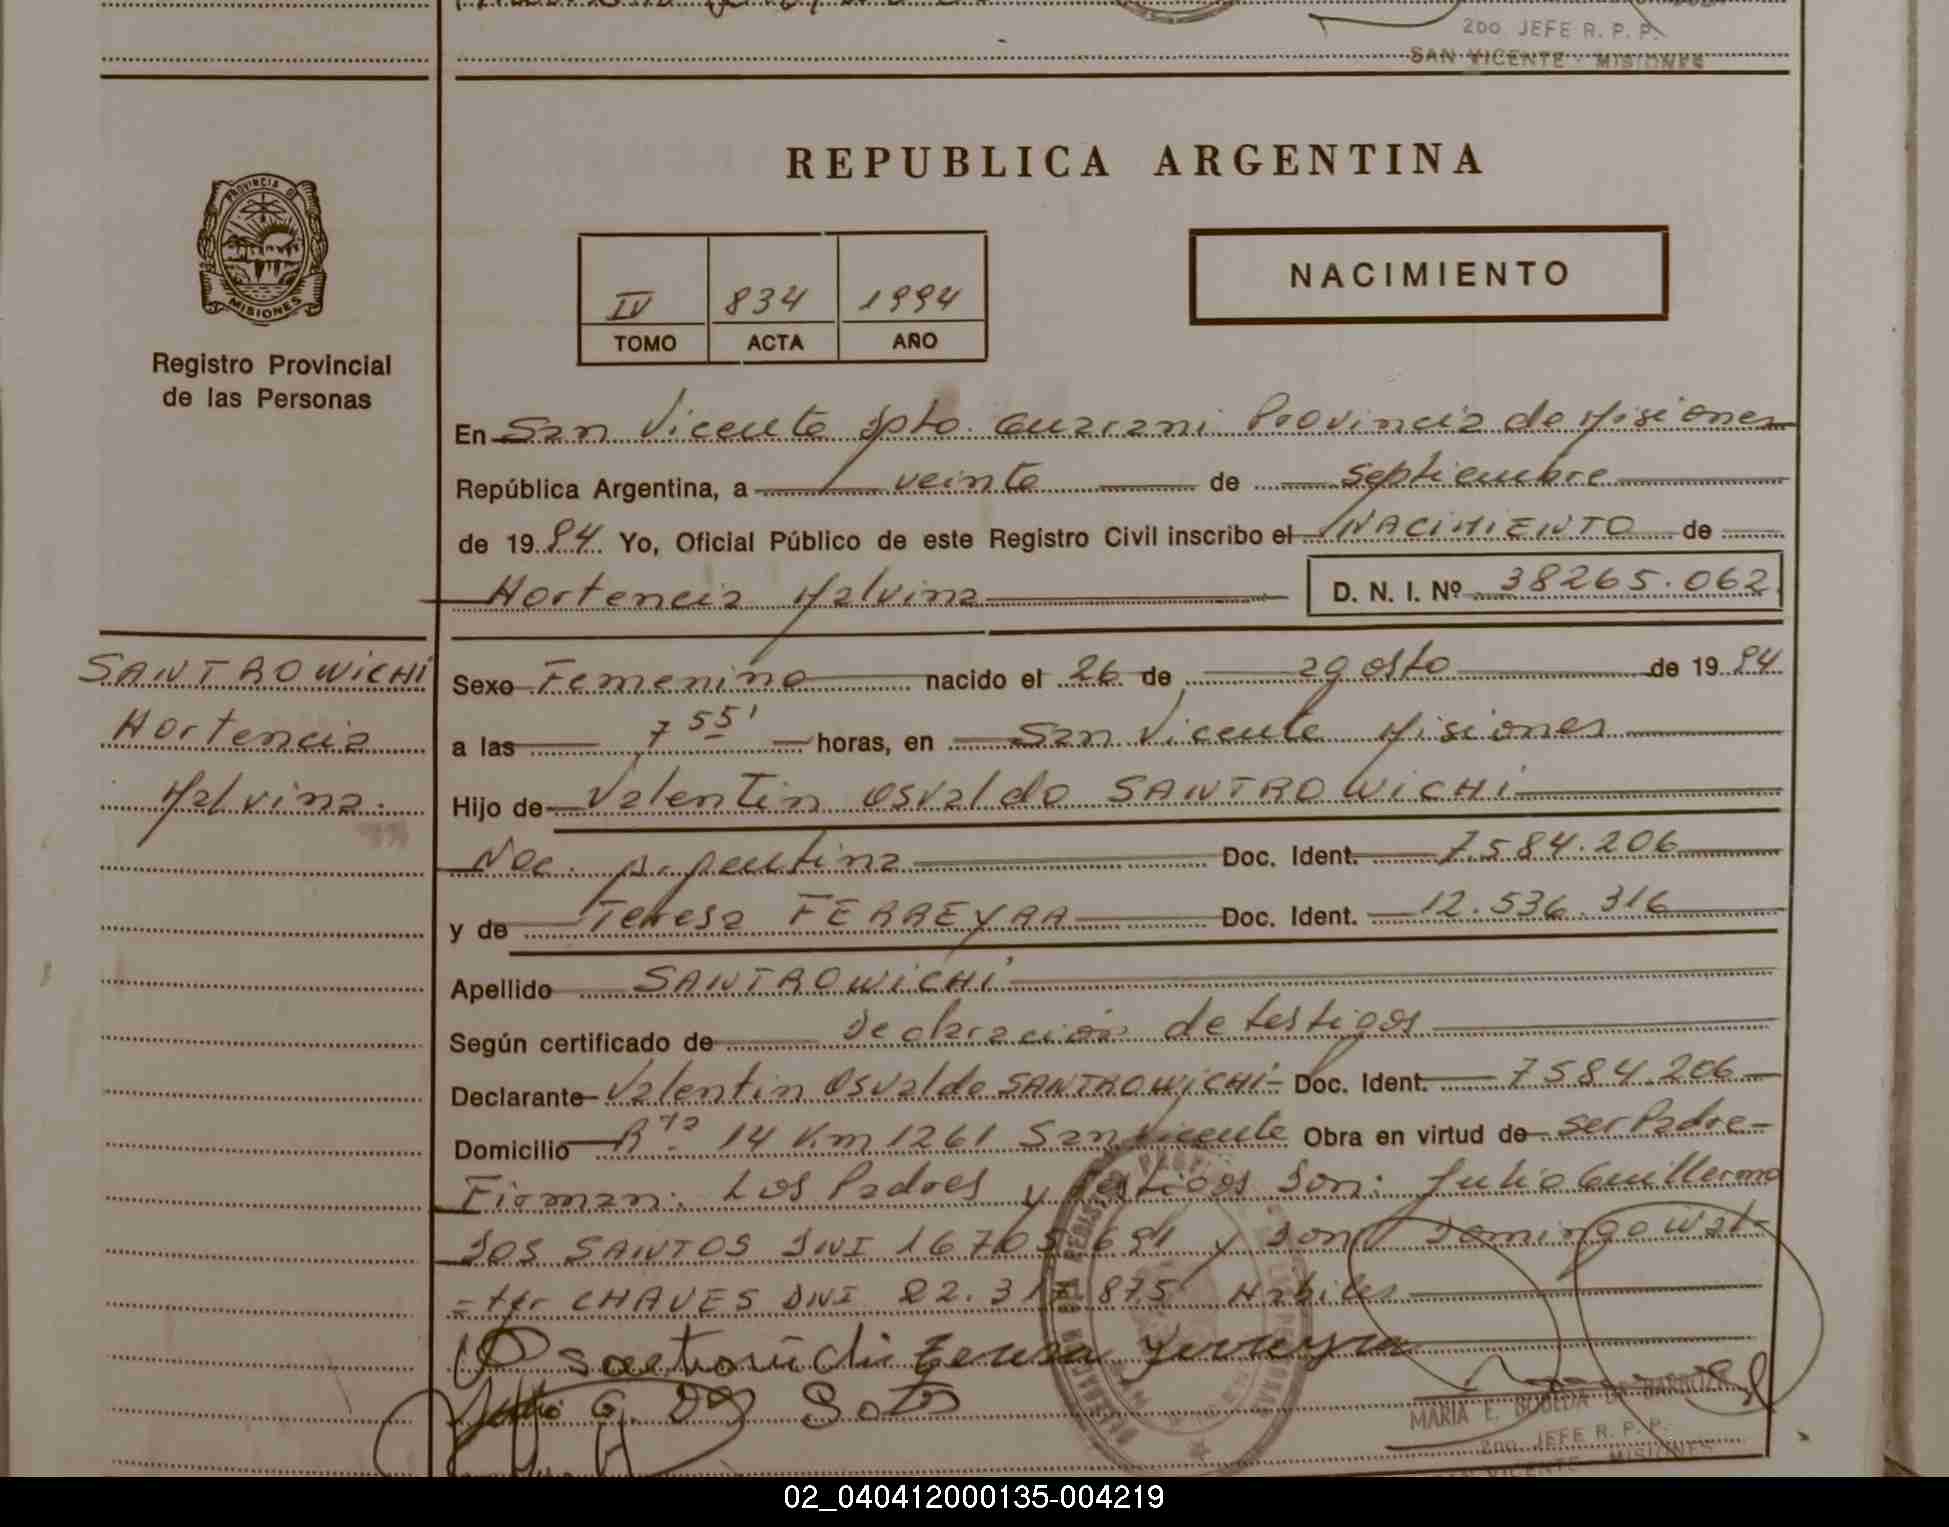 2do JEFE R. P. P.
SAN VICENTE - MISIONES
REPUBLICA ARGENTINA
PROVINCIA DE
MISIONES
Registro Provincial
de las Personas
IV 834 1994
TOMO ACTA AÑO
NACIMIENTO
En San Vicente Dpto. Guarani Provincia de Misiones
República Argentina, a veinte de septiembre
de 1994 Yo, Oficial Público de este Registro Civil inscribo el NACIMIENTO de
Hortencia Malvina D. N. I. Nº 38265.062
SANTROWICHI
Hortencia
Malvina.
Sexo Femenino nacido el 26 de agosto de 1994
a las 7 55' horas, en San Vicente Misiones
Hijo de Valentin Osvaldo SANTROWICHI
Nac. Argentina Doc. Ident. 7584.206
y de Teresa FERREYRA Doc. Ident. 12.536.316
Apellido SANTROWICHI
Según certificado de Declaración de testigos
Declarante Valentin Osvaldo SANTROWICHI- Doc. Ident. 7584.206
Domicilio Rta. 14 Km 1261 San Vicente Obra en virtud de ser Padre-
Firman: Los Padres y testigos Son: Julio Guillermo
DOS SANTOS DNI y Don Domingo Wal-
=ter CHAVES DNI 22.317.875 Habiles
Teresa Ferreyra
Julio G. Dos Santos
MARIA E.
2do. JEFE R. P. P.
SAN VICENTE - MISIONES
02_040412000135-004219